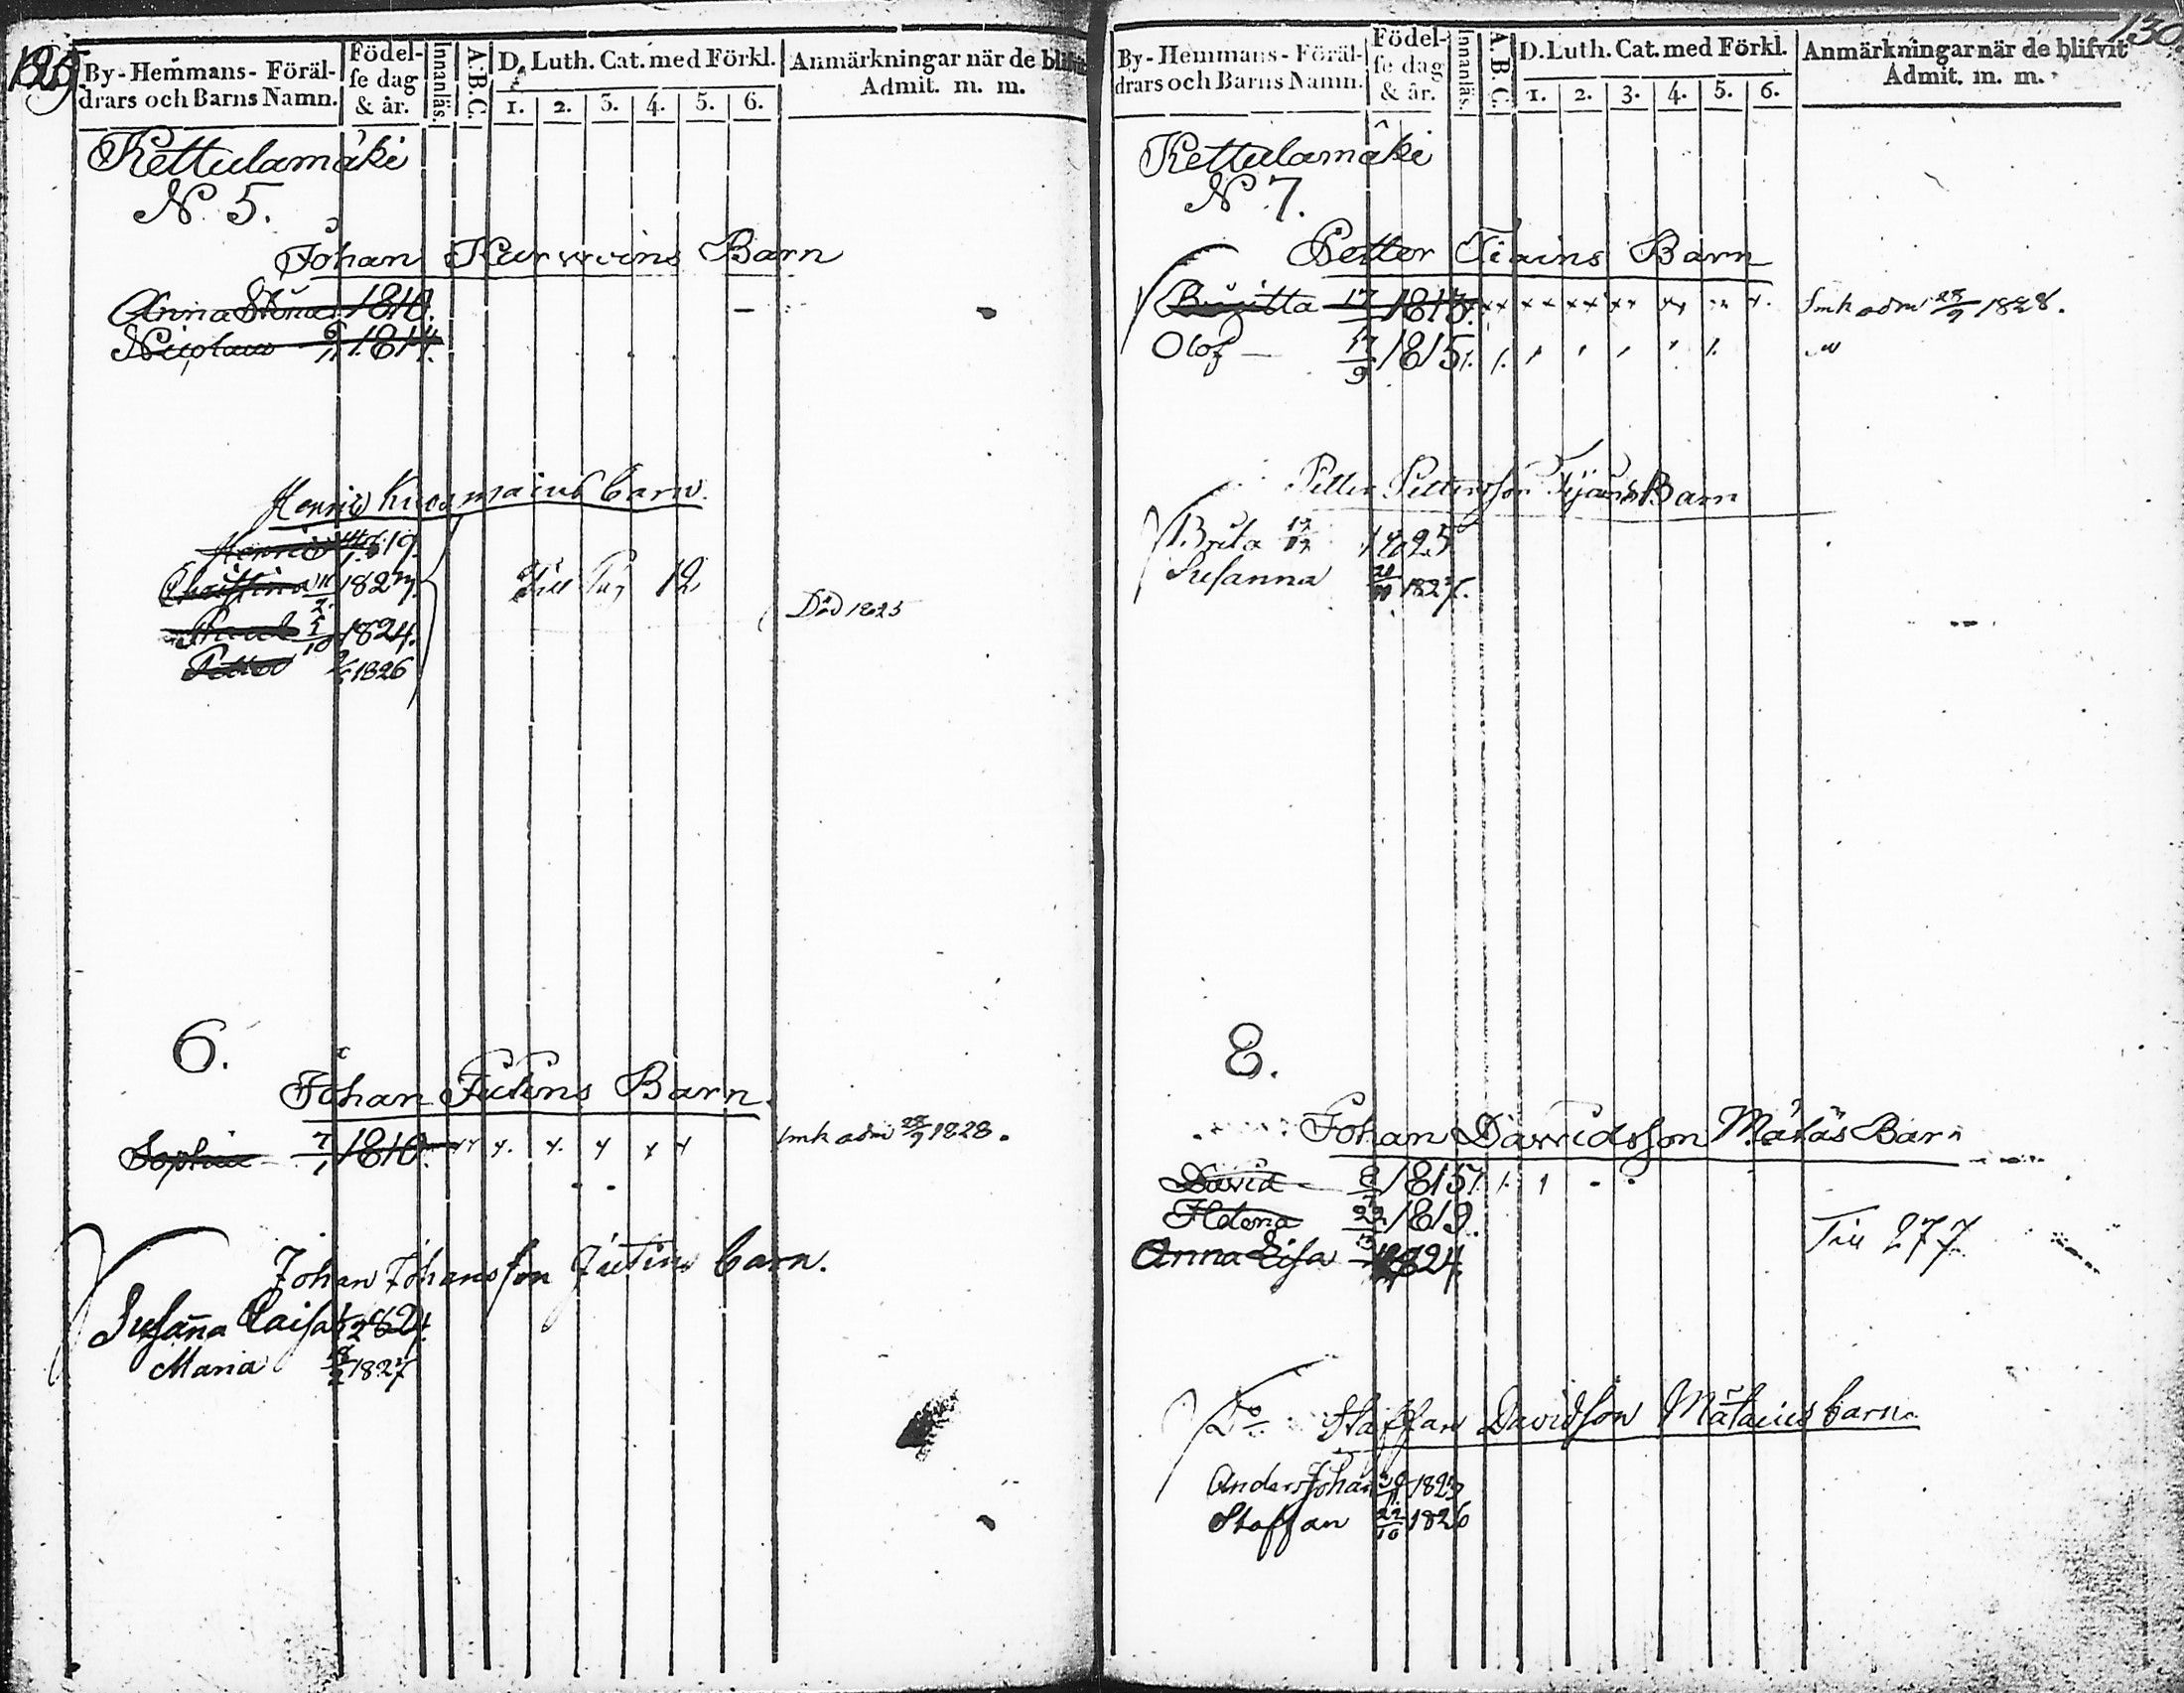 129.
By-Hemmans-Föräl-
drars och Barns Namn.
Födel-
se dag
& år.
Innanläs.
A.B.C.
D. Luth. Cat. med Förkl.
1. 2. 3. 4. 5. 6.
Anmärkningar når de blifvit
Admit. m. m.
Kettulamäki
N. 5.
Johan Kurwins Barn
Anna Stina 1810.
Nicolaus 6/11 1814.
Henric barn.
Henric 19.
Christina 11/2 1823.
5/10 1824. Död 1825
Petter 1826
Till Pag 12
6.
Johan Jutins Barn.
Sophia 7/1 1810. x x x. x. x x x Smk adm 28/9 1828.
Johan Johansson Jutins barn.
Susanna Caisa 1824.
Maria 18/2 1827
130
By-Hemmans-Föräl-
drars och Barns Namn.
Födel-
se dag
& år.
Innanläs.
A.B.C.
D. Luth. Cat. med Förkl.
1. 2. 3. 4. 5. 6.
Anmärkningar når de blifvit
Admit. m. m.
Kettulamäki
N. 7.
Petter Tiains Barn
Birgitta 17 1813. Smk adm 28/9 1828.
Olof 17/9 1815.
Petter Pettersson Tjäins Barn
Brita 1825
Susanna 20/10 1827.
8.
Johan Davidsson Mätäs Barn
David 1815.
Helena 22 1819.
Anna Lisa 1824.
Till 277
Do Staffan Davidson barn
Anders Johan 1823
Staffan 22/10 1826